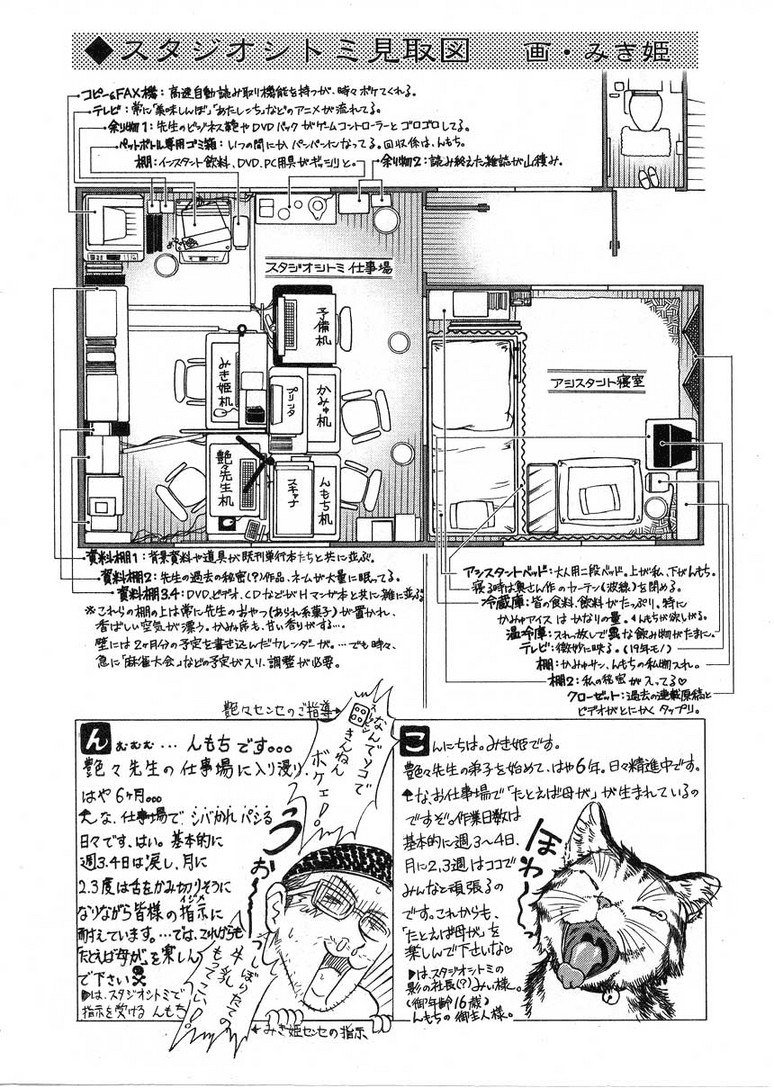 ◆スタジオシトミ見取図 画・みき姫
コピー&FAX機：高速自動読み取り機能を持つが、時々ボケてくれる。
テレビ：常に「美味しんぼ」「あたしンち」などのアニメが流れてる。
余り物1：先生のビジネス鞄やDVDパックがゲームコントローラーとゴロゴロしてる。
ペットボトル専用ゴミ箱：いつの間にかパーパーになってる。回収係は、んもち。
棚：インスタント飲料、DVD、PC用具がギッシリと。
余り物2：読み終えた雑誌が山積み。
スタジオシトミ仕事場
予備机
みき姫机
プリンタ
かみゅ机
艶々先生机
スキャナ
んもち机
アシスタント寝室
資料棚1：背景資料や道具が既刊単行本たちと共に並ぶ。
資料棚2：先生の過去の秘密(?)作品、ネームが大量に眠ってる。
資料棚3.4：DVD、ビデオ、CDなどがHマンガ本と共に雑に並ぶ
※これらの棚の上は常に先生のおやつ(あられ系菓子)が置かれ、
香ばしい空気が漂う。かみゅ床も、甘い香りがする…
壁には2ヶ月分の予定を書き込んだカレンダーが。…でも時々、
急に「麻雀大会」などの予定が入り、調整が必要。
アシスタントベッド：大人用二段ベッド。上が私、下がんもち。
寝る時は奥さん作のカーテン(波線)を閉める。
冷蔵庫：皆の食料、飲料がたっぷり。特に
かみゅアイスはかなりの量。んもちが欲しがる。
温冷庫：スれっ放しで異な飲み物がたまに。
テレビ：微妙に映る。(19年モノ)
棚：かみゅサン、んもちの私物入れ。
棚2：私の秘密が入ってる♡
クローゼット：過去の連載原稿と
ビデオがとにかくタップリ。
艶々センセのご指導
なんでソコで
スードンきんねん
ボケェ！
んぉむむむ…んもちです。。。
艶々先生の仕事場に入り浸り、
はや6ヶ月。。。
↑な、仕事場でシバかれパシる
日々です、はい。基本的に
週3.4日は涙し、月に
2.3度は舌をかみ切りそうに
なりながら皆様の指示に
イジメ
耐えています。…では、これからも
たとえば母が を楽しん
で下さい☠
▶は、スタジオシトミで
指示を受ける んもち
うぉー
しぼりたての
牛乳
もってこい！
←みき姫センセの指示
こんにちは。みき姫です。
艶々先生の弟子を始めて、はや6年。日々精進中です。
↑な、お仕事場で「たとえば母が」が生まれているの
ですぞ。作業日数は
基本的に週3〜4日、
月に2,3週はココで
みんなと頑張るの
です。これからも、
「たとえば母が」を
楽しんで下さいな♡
▶は、スタジオシトミの
影の社長(?)みぃ様。
(御年齢16歳)
んもちの御主人様。
ほわ〜っ